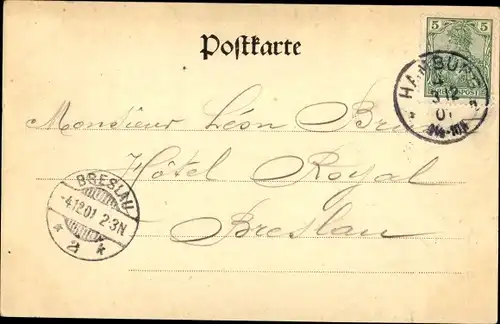 Postkarte
5 5
REICHSPOST
HAMBURG
3 12
01
Monsieur Léon
Hôtel Royal
Breslau
BRESLAU
-4.12.01. 2-3N
* 2 *